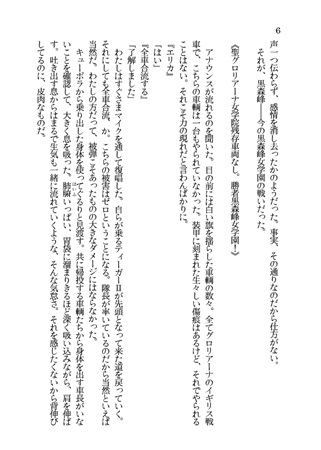 6
声一つ伝わらず、感情を消し去ったかのようだった。事実、その通りなのだから仕方がない。
それが、黒森峰――今の黒森峰女学園の戦いだった。
《聖グロリアーナ女学院残存車両なし。勝者黒森峰女学園！》
アナウンスが流れるのを聞いた。目の前には白い旗を揺らした車輌の数々。全てグロリアーナのイギリス戦
車で、こちらの車輌は一台もやられていない。装甲に刻まれた生々しい傷痕はあるけど、それでやられる
ことはない。それこそ力の現れだと言わんばかりに。
『エリカ』
「はい」
『全車合流する』
「了解しました」
わたしはすぐさまマイクを通して復唱した。自らが乗るティーガーⅡが先頭となって来た道を戻っていく。
それにしても全車合流、か。こちらの被害はゼロということになる。隊長が率いているのだから当然といえば
当然だ。わたしの方だって、被弾こそあったものの大きなダメージにはならなかった。
キューポラから乗り出した身体を使ってぐるりと見渡す。共に帰投する車輌たちから身体を出す車長がいな
いことを確認して、大きく息を吸った。肺臓いっぱい、胃袋に溜まりきるほど深く吸い込みながら、肩を伸ば
す。吐き出す息からはまるで生気も一緒に流れていくような、そんな気怠さ。それを感じたくないから背伸び
してるのに、皮肉なものだ。